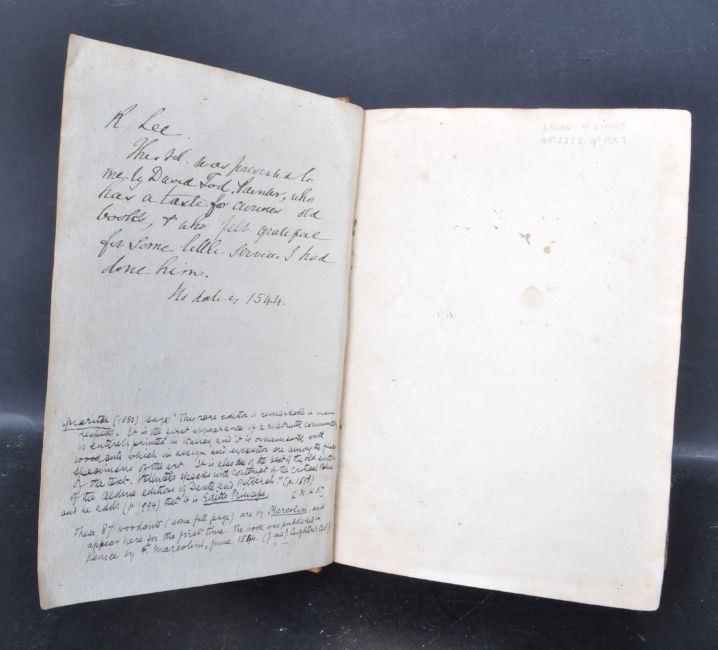 R. Lee.
This vol. was presented to
me by David Tod, Painter, who
has a taste for curious old
books, & who felt grateful
for some little services I had
done him.
Its date is 1544.
Quaritch (1880) says: "This rare editio is remarkable in many
respects. It is the first appearance of a celebrated commentary
is entirely printed in italics, and it is ornamented with
woodcuts which in design and execution are among the
specimens of the art. It is also one of the best of the old editions
of the text. Vellutello speaks with contempt of the critical
of the Aldine editions of Dante and Petrarch"
and he adds that it is Editio Princeps.
These 87 woodcuts (some full page) are by Marcolini, and
appear here for the first time. The book was published in
Venice by F. Marcolini, June, 1544.